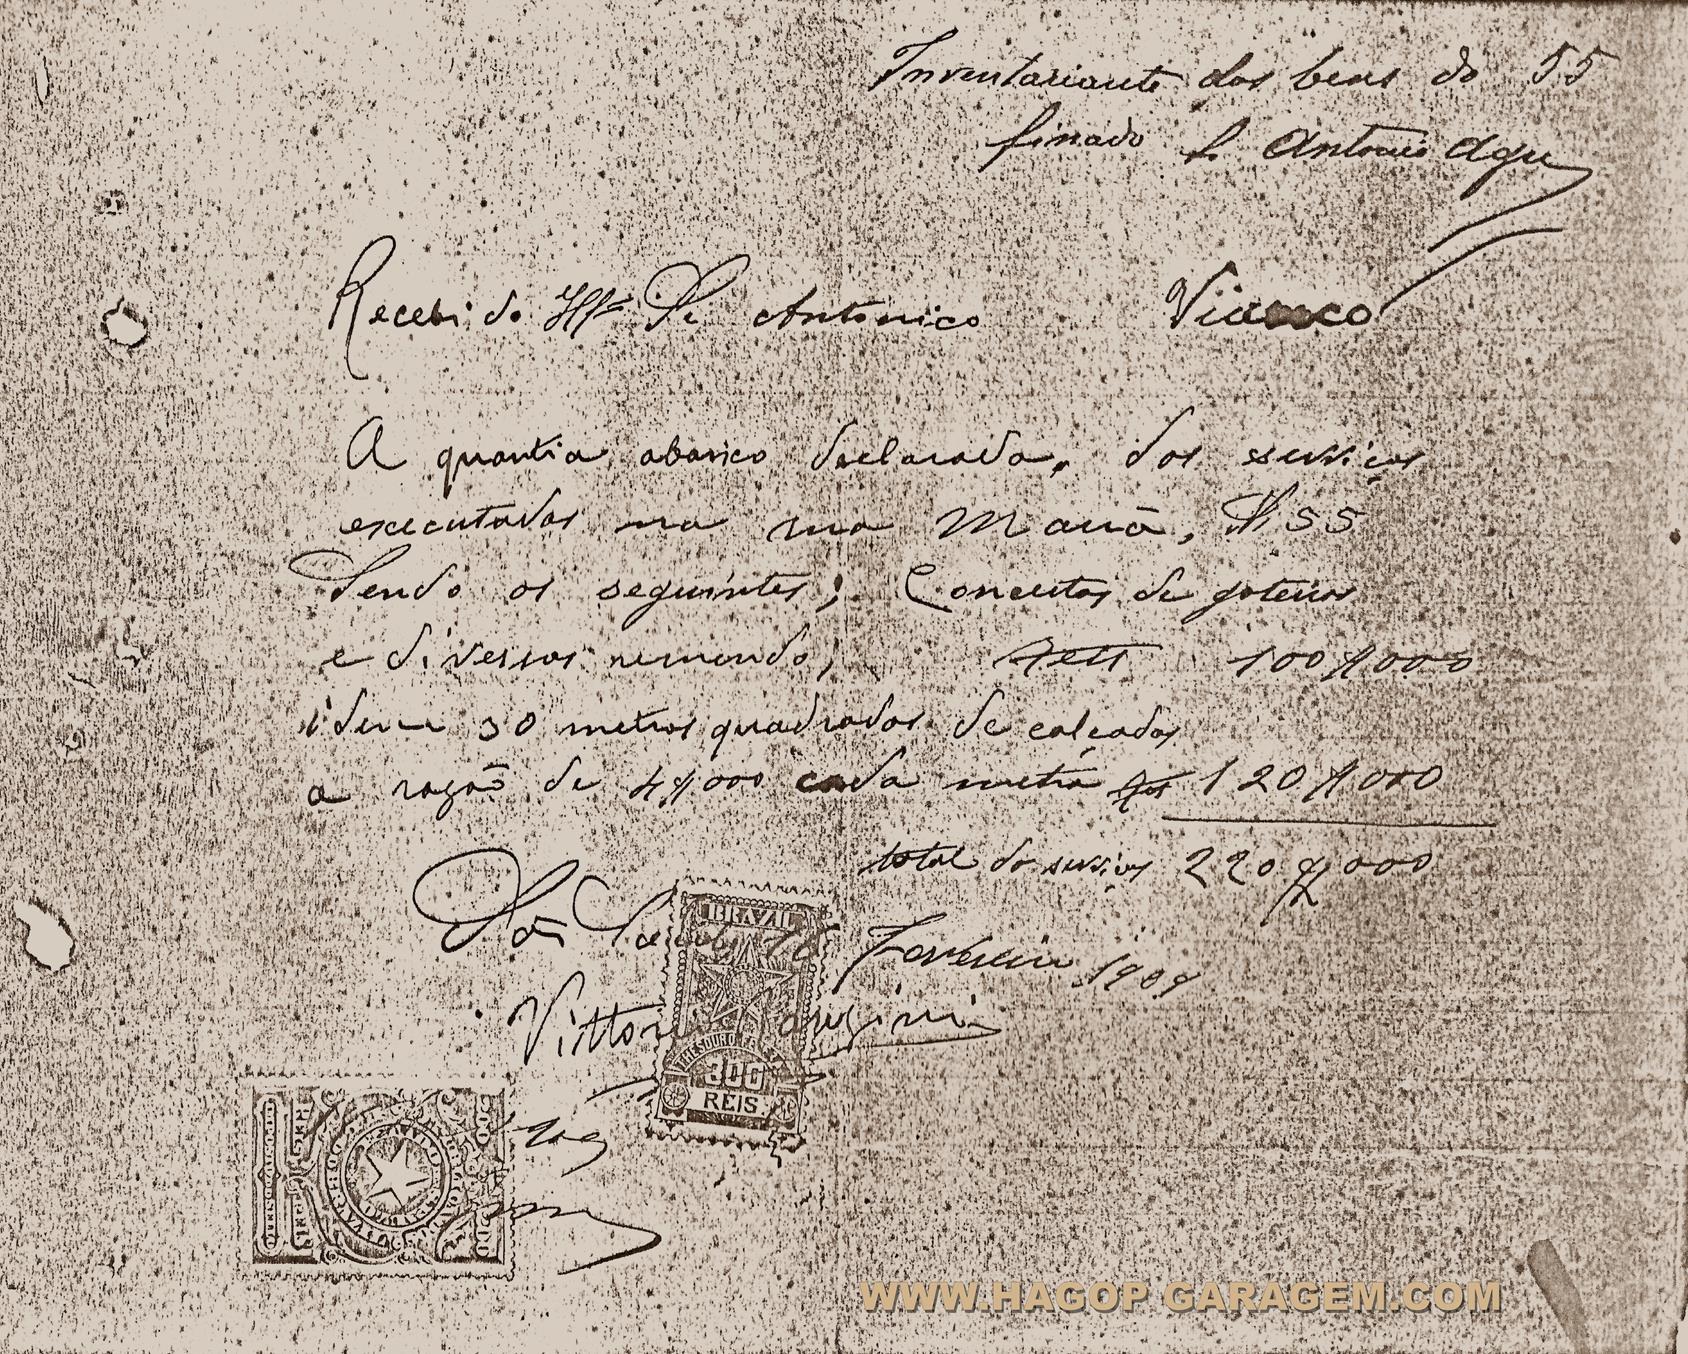 Inventariante dos bens do 55
finado Antonio Agu
Recebi do Illmo Sr Antonico Vianco
A quantia abaxico declarada, dos serviços
executados na rua Mauá, N. 55
Sendo os seguintes; Concertos de goteiras
e diversos remendo, 100$000
idem 30 metros quadrados de calçados
a razão de 4$000 cada metro 120$000
total do serviços 220$000
São Fevereiro 1909
BRAZIL
THESOURO FEDERAL
300
REIS
WWW.HAGOP GARAGEM.COM